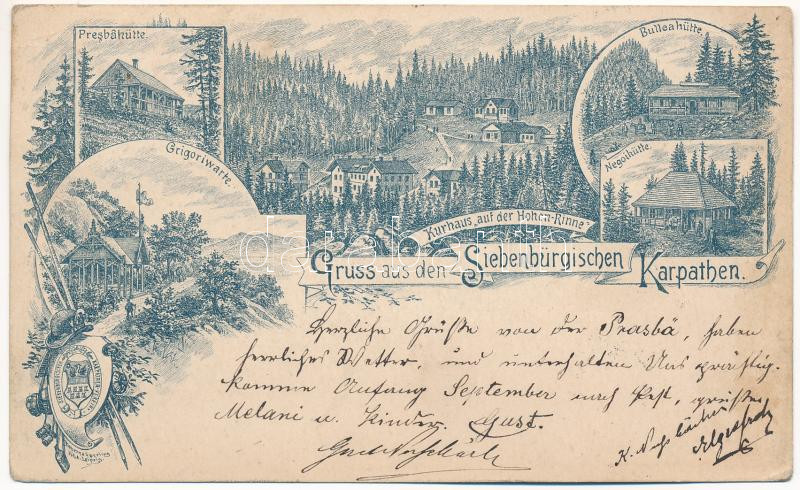 Presbåhütte.
Bulleahütte.
Grigoriwarte.
Negoihütte.
Kurhaus „auf der Hohen-Rinne"
Gruss aus den Siebenbürgischen Karpathen.
Herzliche Grüße von der Prasbå, haben
herrliches Wetter, und unterhalten Uns prächtig.
komme Anfang September nach Pest, grüßen
Melani u. Kinder. Gust.